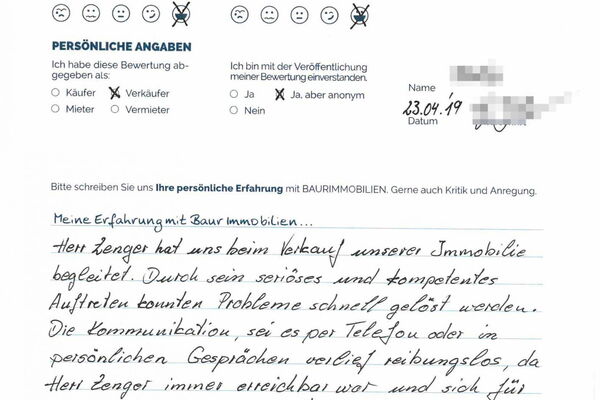 PERSÖNLICHE ANGABEN
Ich habe diese Bewertung ab-
gegeben als:
Käufer Verkäufer
Mieter Vermieter
Ich bin mit der Veröffentlichung
meiner Bewertung einverstanden.
Ja Ja, aber anonym
Nein
Name
23.04.'19
Datum
Bitte schreiben Sie uns Ihre persönliche Erfahrung mit BAURIMMOBILIEN. Gerne auch Kritik und Anregung.
Meine Erfahrung mit Baur Immobilien...
Herr Zenger hat uns beim Verkauf unserer Immobilie
begleitet. Durch sein seriöses und kompetentes
Auftreten konnten Probleme schnell gelöst werden.
Die Kommunikation, sei es per Telefon oder in
persönlichen Gesprächen verlief reibungslos, da
Herr Zenger immer erreichbar war und sich für